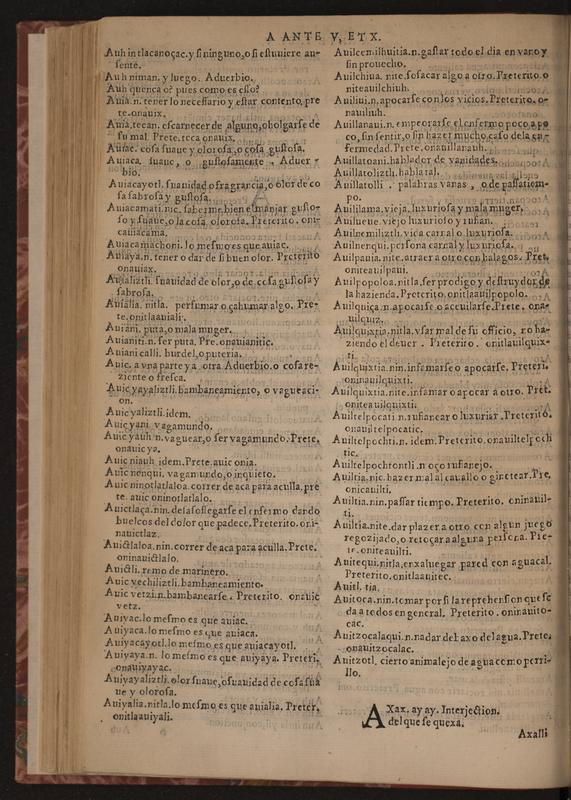 A ANTE V, ET X.
Auh intlacanoçac. y si ninguno, o si estuuiere au-
sente.
Auh niman. y luego. Aduerbio.
Auh quenca? pues como es esso?
Auia. n. tener lo necessario y estar contento, pre
te. onauix.
Auia, tecan. escarnecer de alguno, o holgarse de
su mal. Prete. teca onauix.
Auiac. cosa suaue y olorosa, o cosa gustosa.
Auiaca. suaue, o gustosamente. Aduer-
bio.
Auiacayotl. suauidad o fragrancia, o olor de co
sa sabrosa y gustosa.
Auiacamati. nic. saberme bien el manjar gusto-
so y suaue, o la cosa olorosa. Preterito. oni-
cauiacama.
Auiacamachoni. lo mesmo es que auiac.
Auiaya. n. tener o dar de si buen olor. Preterito
onauiax.
Auializtli. suauidad de olor, o de cosa gustosa y
sabrosa.
Auialia. nitla. perfumar o çahumar algo. Pre-
te. onitlaauiali.
Auiani. puta, o mala muger.
Auianiti. n. ser puta. Pre. onauianitic.
Auiani calli. burdel, o puteria.
Auic. a vna parte y a otra Aduerbio. o cosa re-
ziente o fresca.
Auic yayaliztli. bambaneamiento, o vagueaci-
on.
Auic yaliztli. idem.
Auic yani vagamundo.
Auic yauh n. vaguear, o ser vagamundo. Prete.
onauic ya.
Auic niauh idem. Prete. auic onia.
Auic nenqui. vagamundo, o inquieto.
Auic ninotlatlaloa. correr de aca para aculla, pre
te. auic oninotlatlalo.
Auictlaça. nin. desasossegarse el enfermo dando
buelcos del dolor que padece. Preterito. oni-
nauictlaz.
Auictlaloa. nin. correr de aca para aculla. Prete.
oninauictlalo.
Auictli. remo de marinero.
Auic vechiliztli. bambaneamiento.
Auic vetzi. nin. bambanearse. Preterito. onauic
vetz.
Auiyac. lo mesmo es que auiac.
Auiyaca. lo mesmo es que auiaca.
Auiyacayotl. lo mesmo es que auiacayotl.
Auiyaya. n. lo mesmo es que auiaya. Preteri.
onauiyayac.
Auiyayaliztli. olor suaue, o suauidad de cosa sua
ue y olorosa.
Auiyalia. nitla. lo mesmo es que auialia. Preter.
onitlaauiyali.
Auilcemilhuitia. n. gastar todo el dia en vano y
sin prouecho.
Auilchiua. nite. sofacar algo a otro. Preterito. o
niteauilchiuh.
Auiliui. n. apocarse con los vicios. Preterito. o-
nauiliuh.
Auillanaui. n. empeorarse el enfermo poco a po
co, sin sentir, o sin hazer mucho caso de la en-
fermedad. Prete. onauillanauh.
Auillatoani. hablador de vanidades.
Auillatoliztli. habla tal.
Auillatolli. palabras vanas, o de passatiem-
po.
Auililama. vieja, luxuriosa y mala muger.
Auilueue. viejo luxurioso y rufian.
Auilnemiliztli. vida carnal o luxuriosa.
Auilnenqui. persona carnal y luxuriosa.
Auilpauia. nite. atraer a otro con halagos. Pret.
oniteauilpaui.
Auilpopoloa. nitla. ser prodigo y destruydor de
la hazienda. Preterito. onitlaauilpopolo.
Auilquiça. n. apocarse o acceuilarse. Prete. ona-
uilquiz.
Auilquixtia. nitla. vsar mal de su officio, no ha-
ziendo el deuer. Preterito. onitlauilquix-
ti.
Auilquixtia. nin. infamarse o apocarse. Preteri.
oninauilquixti.
Auilquixtia. nite. infamar o apocar a otro. Pret.
oniteauilquixti.
Auiltelpocati n. rufianear o luxuriar. Preterito.
onauiltelpocatic.
Auiltelpochti. n. idem. Preterito. onauiltelpochti
tic.
Auiltelpochtontli. n oço rufianejo.
Auiltia. nic. hazer mal al cauallo o ginetear. Pre.
onicauilti.
Auiltia. nin. passar tiempo. Preterito. oninauil-
ti.
Auiltia. nite. dar plazer a otro con algun juego
regozijado, o retoçar a alguna persona. Pre-
te. oniteauilti.
Auitequi. nitla, enxaluegar pared con agua cal.
Preterito. onitlaauitec.
Auitl. tia.
Auitoca. nin. tomar por si la reprehension que se
da a todos en general. Preterito. oninauito-
cac.
Auitzocalaqui. n. nadar debaxo del agua. Prete.
onauitzocalac.
Auitzotl. cierto animalejo de agua como perri-
llo.
AXax. ay ay. Interjection.
del que se quexa.
Axalli